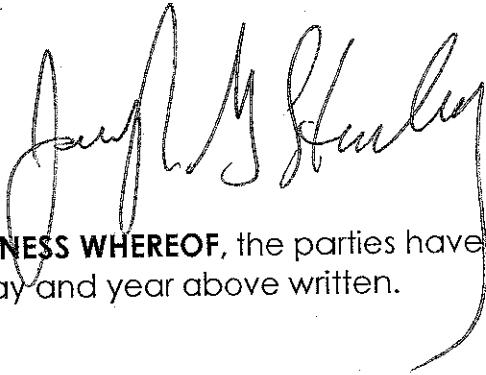 NESS WHEREOF, the parties have
ay and year above written.